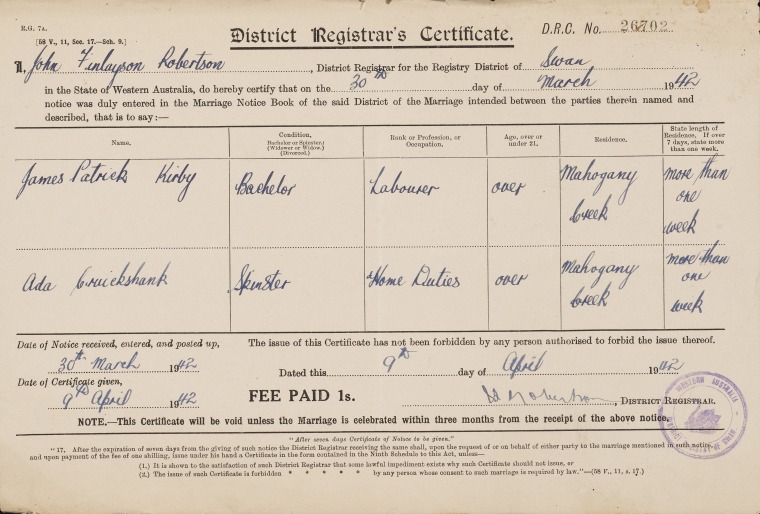 R.G. 7A.
[58 V., 11, Sec. 17.—Sch. 9.]
District Registrar's Certificate.
D.R.C. No. 26702
I, John Finlayson Robertson, District Registrar for the Registry District of Swan
in the State of Western Australia, do hereby certify that on the 30th day of March 1942
notice was duly entered in the Marriage Notice Book of the said District of the Marriage intended between the parties therein named and
described, that is to say:—
Name.
Condition, Bachelor or Spinster; (Widower or Widow.) (Divorced.)
Rank or Profession, or Occupation.
Age, over or under 21.
Residence.
State length of Residence. If over 7 days, state more than one week.
James Patrick Kirby Bachelor Labourer over Mahogany Creek more than one week
Ada Cruickshank Spinster Home Duties over Mahogany Creek more than one week
Date of Notice received, entered, and posted up,
30th March 1942
Date of Certificate given,
9th April 1942
The issue of this Certificate has not been forbidden by any person authorised to forbid the issue thereof.
Dated this 9th day of April 1942
FEE PAID 1s.
Robertson, DISTRICT REGISTRAR.
NOTE.—This Certificate will be void unless the Marriage is celebrated within three months from the receipt of the above notice.
"After seven days Certificate of Notice to be given."
"17. After the expiration of seven days from the giving of such notice the District Registrar receiving the same shall, upon the request of or on behalf of either party to the marriage mentioned in such notice,
and upon payment of the fee of one shilling, issue under his hand a Certificate in the form contained in the Ninth Schedule to this Act, unless—
(1.) It is shown to the satisfaction of such District Registrar that some lawful impediment exists why such Certificate should not issue, or
(2.) The issue of such Certificate is forbidden * * * * * by any person whose consent to such marriage is required by law."—(58 V., 11, s. 17.)
WESTERN AUSTRALIA